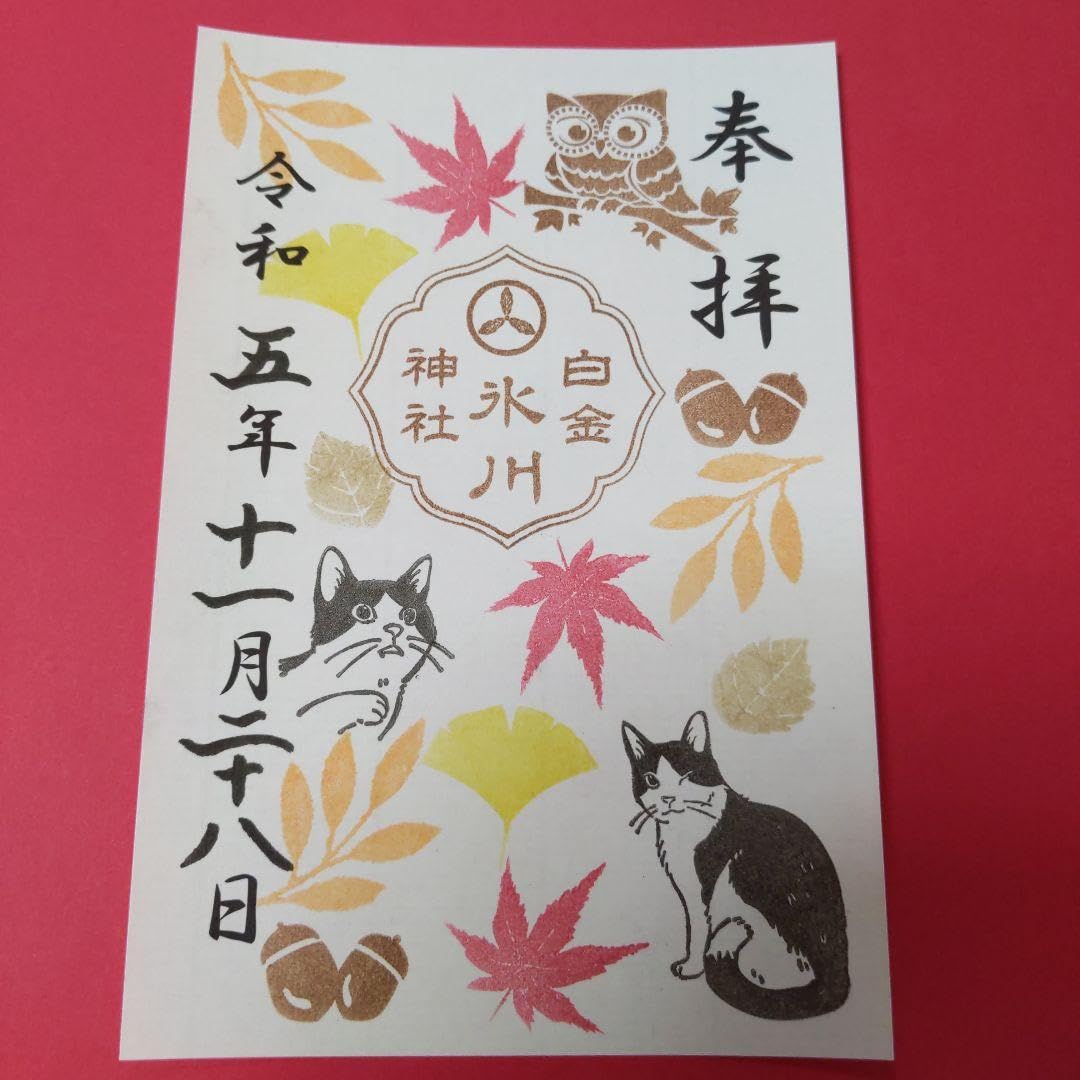 奉拝
白金
氷川
神社
令和五年十一月二十八日